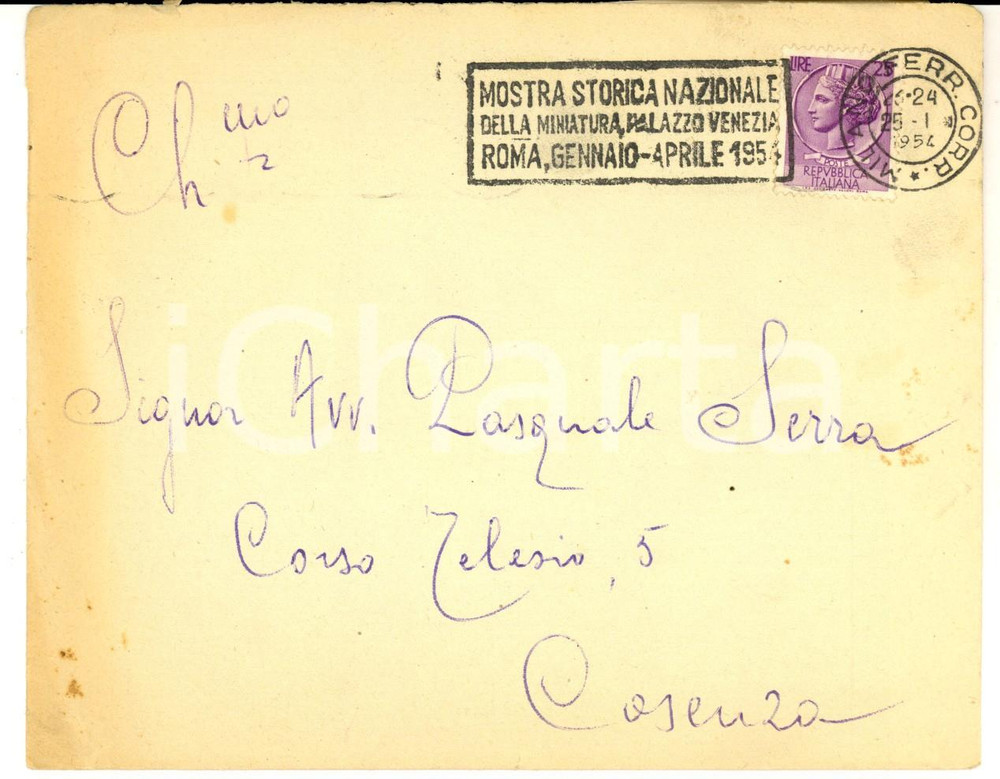 Ch.mo
MOSTRA STORICA NAZIONALE
DELLA MINIATURA, PALAZZO VENEZIA
ROMA, GENNAIO-APRILE 1954
LIRE 25
POSTE
REPVBBLICA
ITALIANA
MILANO FERR. CORR.
23-24
25-1
1954
iCharta
Signor Avv. Pasquale Serra
Corso Telesio, 5
Cosenza